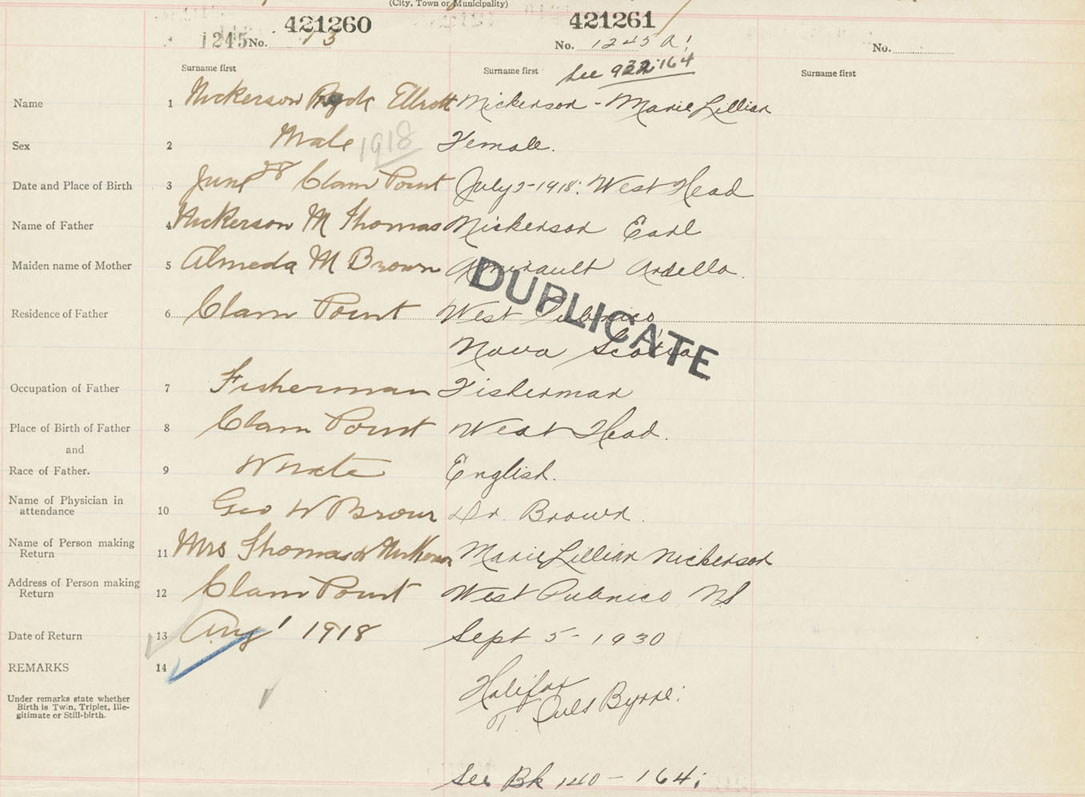 (City, Town or Municipality)
421260 421261
1245 No. 13 No. 1245 A! No.
See 922·164
Surname first Surname first Surname first
Name 1 Nickerson Elliott Nickerson - Marie Lillian
Sex 2 Male 1918 Female.
Date and Place of Birth 3 June 28 Clam Point July 2-1918: West Head
Name of Father 4 Nickerson M Thomas Nickerson Earl
Maiden name of Mother 5 Almeda M Brown Amirault Ardella.
DUPLICATE
Residence of Father 6 Clam Point West Pubnico,
Nova Scotia
Occupation of Father 7 Fisherman Fisherman
Place of Birth of Father 8 Clam Point West Head.
and
Race of Father. 9 White English.
Name of Physician in
attendance 10 Geo W Brown Dr. Brown.
Name of Person making
Return 11 Mrs Thomas Nickerson Marie Lillian Nickerson
Address of Person making
Return 12 Clam Point West Pubnico NS
Date of Return 13 Aug 1 1918 Sept 5 - 1930
REMARKS 14
Under remarks state whether
Birth is Twin, Triplet, Ille-
gitimate or Still-birth.
Halifax
Byrne:
See Bk 140 - 164;